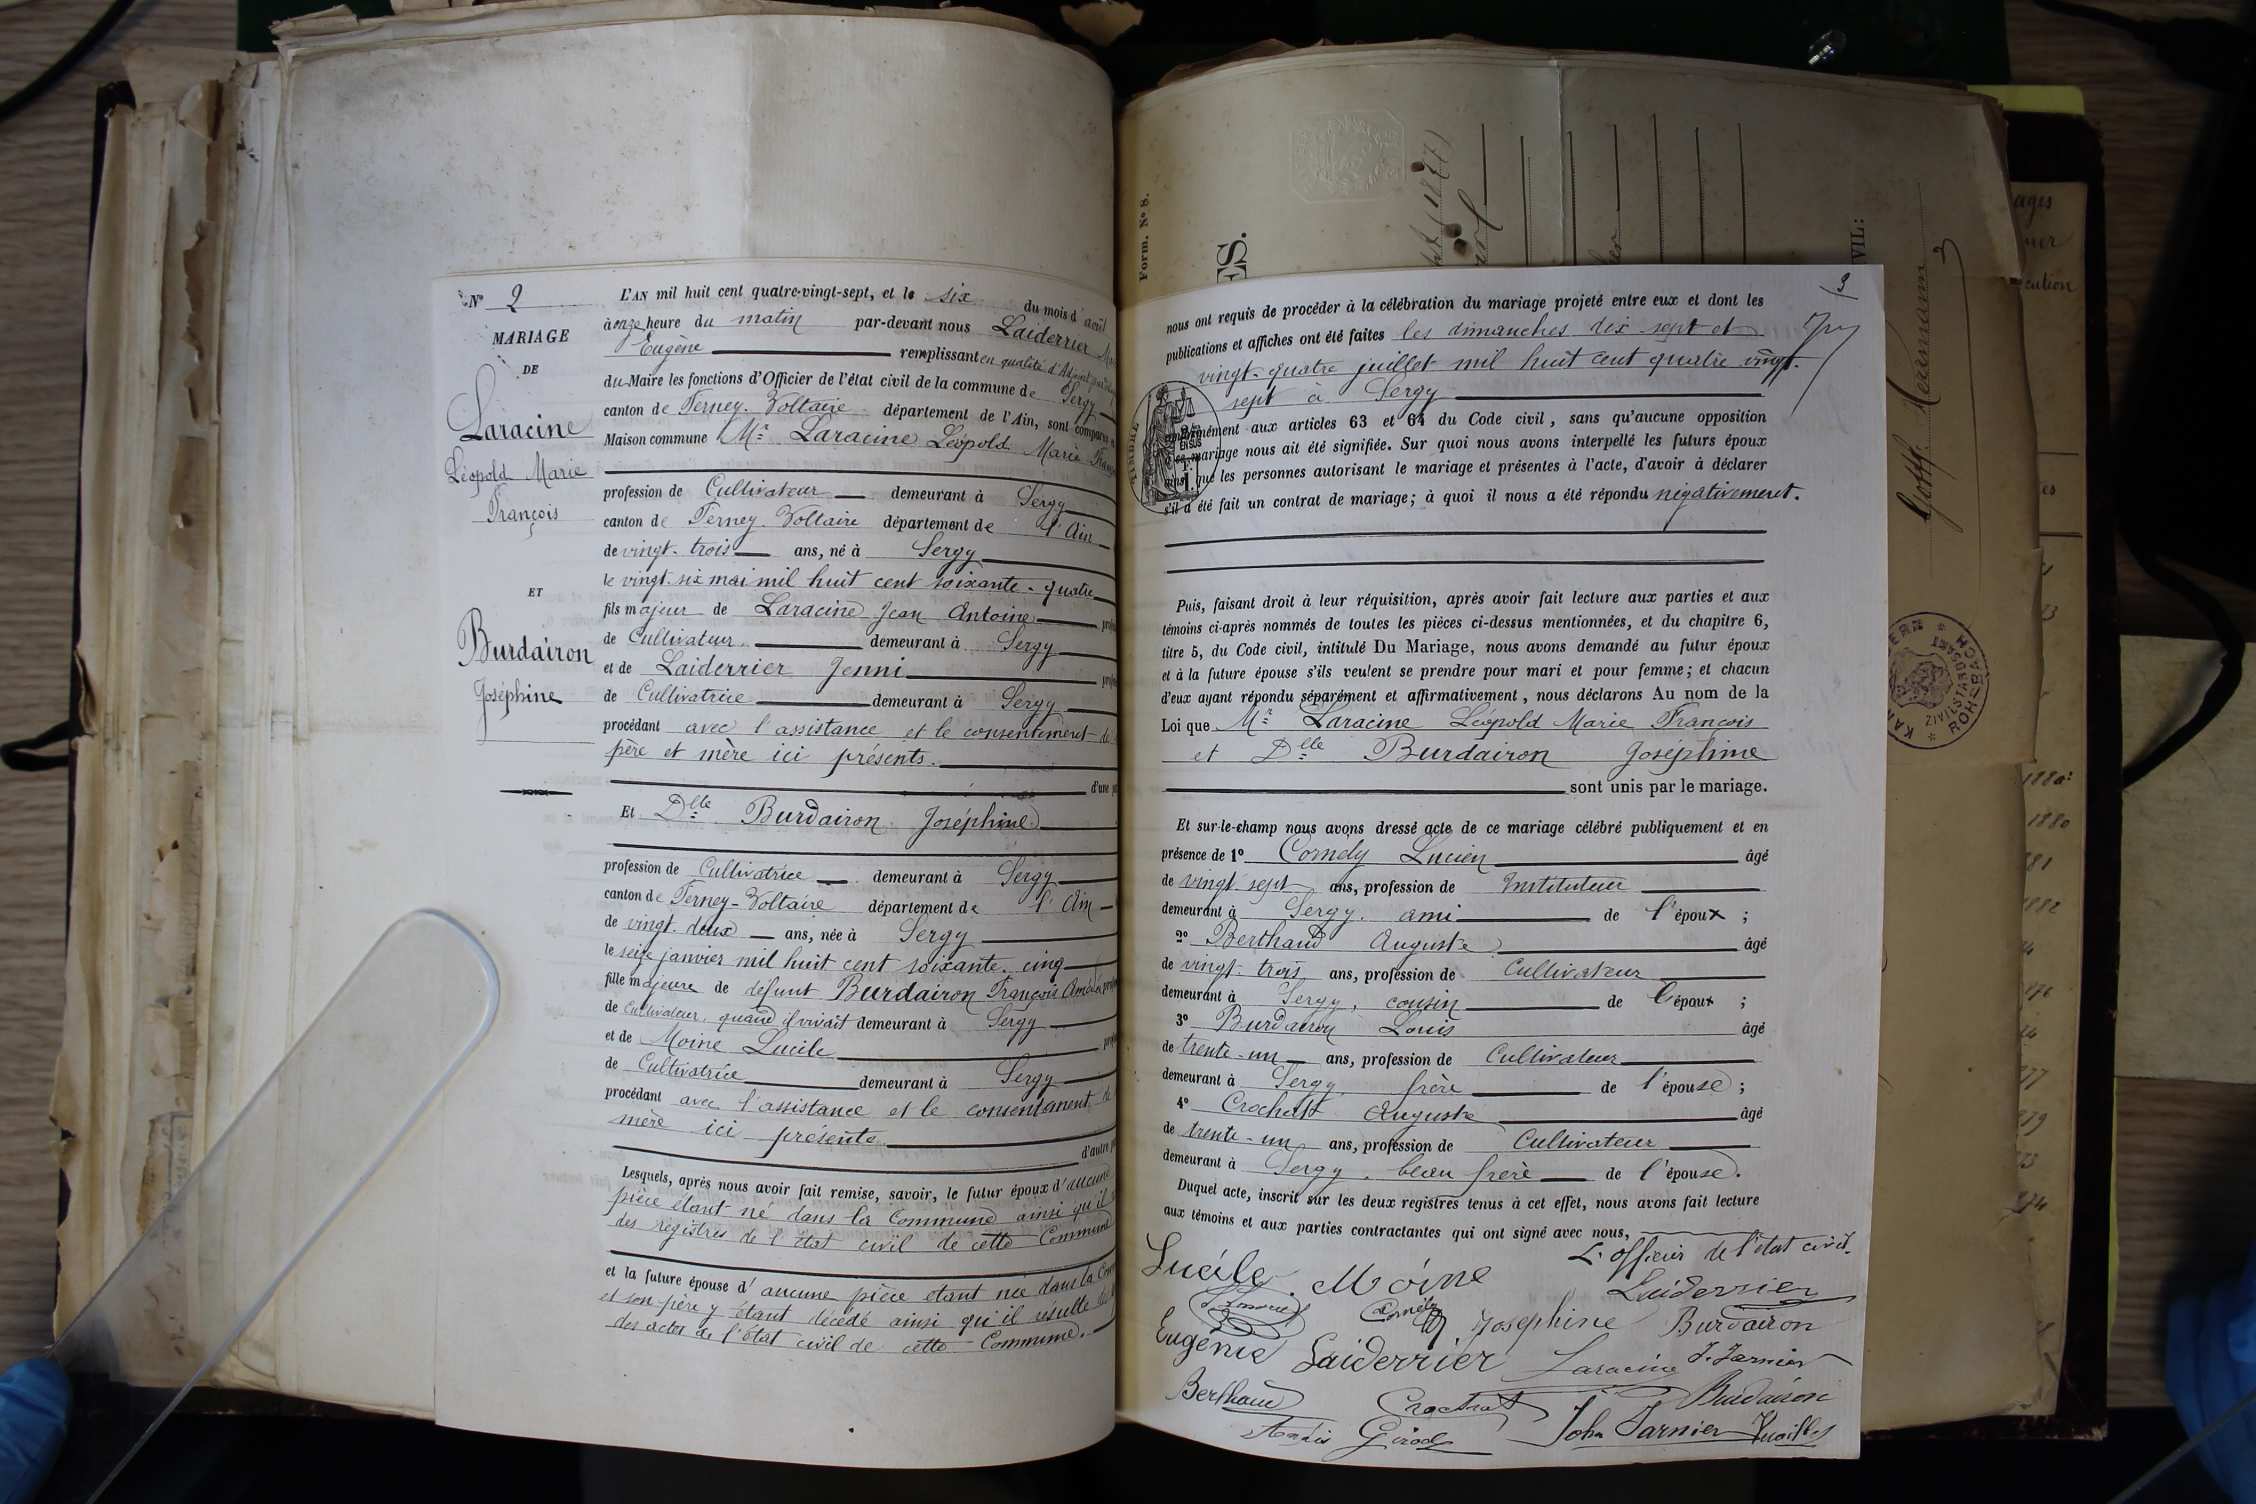 N° 2
MARIAGE
DE
Laracine
Léopold Marie
François
ET
Burdairon
Joséphine
L'AN mil huit cent quatre-vingt-sept, et le six du mois d'août
à onze heure du matin par-devant nous Laiderrier
Eugène remplissant en qualité d'Adjoint
du Maire les fonctions d'Officier de l'état civil de la commune de Sergy
canton de Ferney-Voltaire département de l'Ain, sont comparus
Maison commune Mr Laracine Léopold Marie
profession de Cultivateur demeurant à Sergy
canton de Ferney-Voltaire département de l'Ain
de vingt-trois ans, né à Sergy
le vingt-six mai mil huit cent soixante-quatre
fils majeur de Laracine Jean Antoine
de Cultivateur demeurant à Sergy
et de Laiderrier Jenni
de Cultivatrice demeurant à Sergy
procédant avec l'assistance et le consentement de
père et mère ici présents.
d'une
Et Dlle Burdairon Joséphine
profession de Cultivatrice demeurant à Sergy
canton de Ferney-Voltaire département de l'Ain
de vingt-deux ans, née à Sergy
le seize janvier mil huit cent soixante-cinq
fille majeure de defunt Burdairon François
de Cultivateur, quand il vivait demeurant à Sergy
et de Moine Lucile
de Cultivatrice demeurant à Sergy
procédant avec l'assistance et le consentement de
mère ici présente
d'autre
Lesquels, après nous avoir fait remise, savoir, le futur époux d'aucune
pièce étant né dans la Commune ainsi qu'il
des registres de l'état civil de cette Commune
et la future épouse d'aucune pièce étant née dans la
et son père y étant décédé ainsi qu'il résulte
des actes de l'état civil de cette Commune.
Form. N° 8.
ES.
VIL:
3
nous ont requis de procéder à la célébration du mariage projeté entre eux et dont les
publications et affiches ont été faites les dimanches dix sept et
vingt-quatre juillet mil huit cent quatre vingt-
sept à Sergy
conformément aux articles 63 et 64 du Code civil, sans qu'aucune opposition
à ce mariage nous ait été signifiée. Sur quoi nous avons interpellé les futurs époux
ainsi que les personnes autorisant le mariage et présentes à l'acte, d'avoir à déclarer
s'il a été fait un contrat de mariage; à quoi il nous a été répondu négativement.
TIMBRE
EN SUS
Puis, faisant droit à leur réquisition, après avoir fait lecture aux parties et aux
témoins ci-après nommés de toutes les pièces ci-dessus mentionnées, et du chapitre 6,
titre 5, du Code civil, intitulé Du Mariage, nous avons demandé au futur époux
et à la future épouse s'ils veulent se prendre pour mari et pour femme; et chacun
d'eux ayant répondu séparément et affirmativement, nous déclarons Au nom de la
Loi que Mr Laracine Léopold Marie François
et Dlle Burdairon Joséphine
sont unis par le mariage.
Et sur-le-champ nous avons dressé acte de ce mariage célébré publiquement et en
présence de 1° Comely Lucien âgé
de vingt sept ans, profession de Instituteur
demeurant à Sergy. ami de l'époux ;
2° Berthaud Auguste âgé
de vingt-trois ans, profession de Cultivateur
demeurant à Sergy, cousin de l'époux ;
3° Burdairon Louis âgé
de trente-un ans, profession de Cultivateur
demeurant à Sergy frère de l'épouse ;
4° Crochat Auguste âgé
de trente-un ans, profession de Cultivateur
demeurant à Sergy, beau frère de l'épouse.
Duquel acte, inscrit sur les deux registres tenus à cet effet, nous avons fait lecture
aux témoins et aux parties contractantes qui ont signé avec nous,
L'officier de l'état civil.
Lucile Moine Laiderrier
Josephine Burdairon
Eugénie Laiderrier Laracine J. Jarnier
Berthaud Crochat Burdairon
Girod John Jarnier
ZIVILSTANDSAMT
ROHRBACH